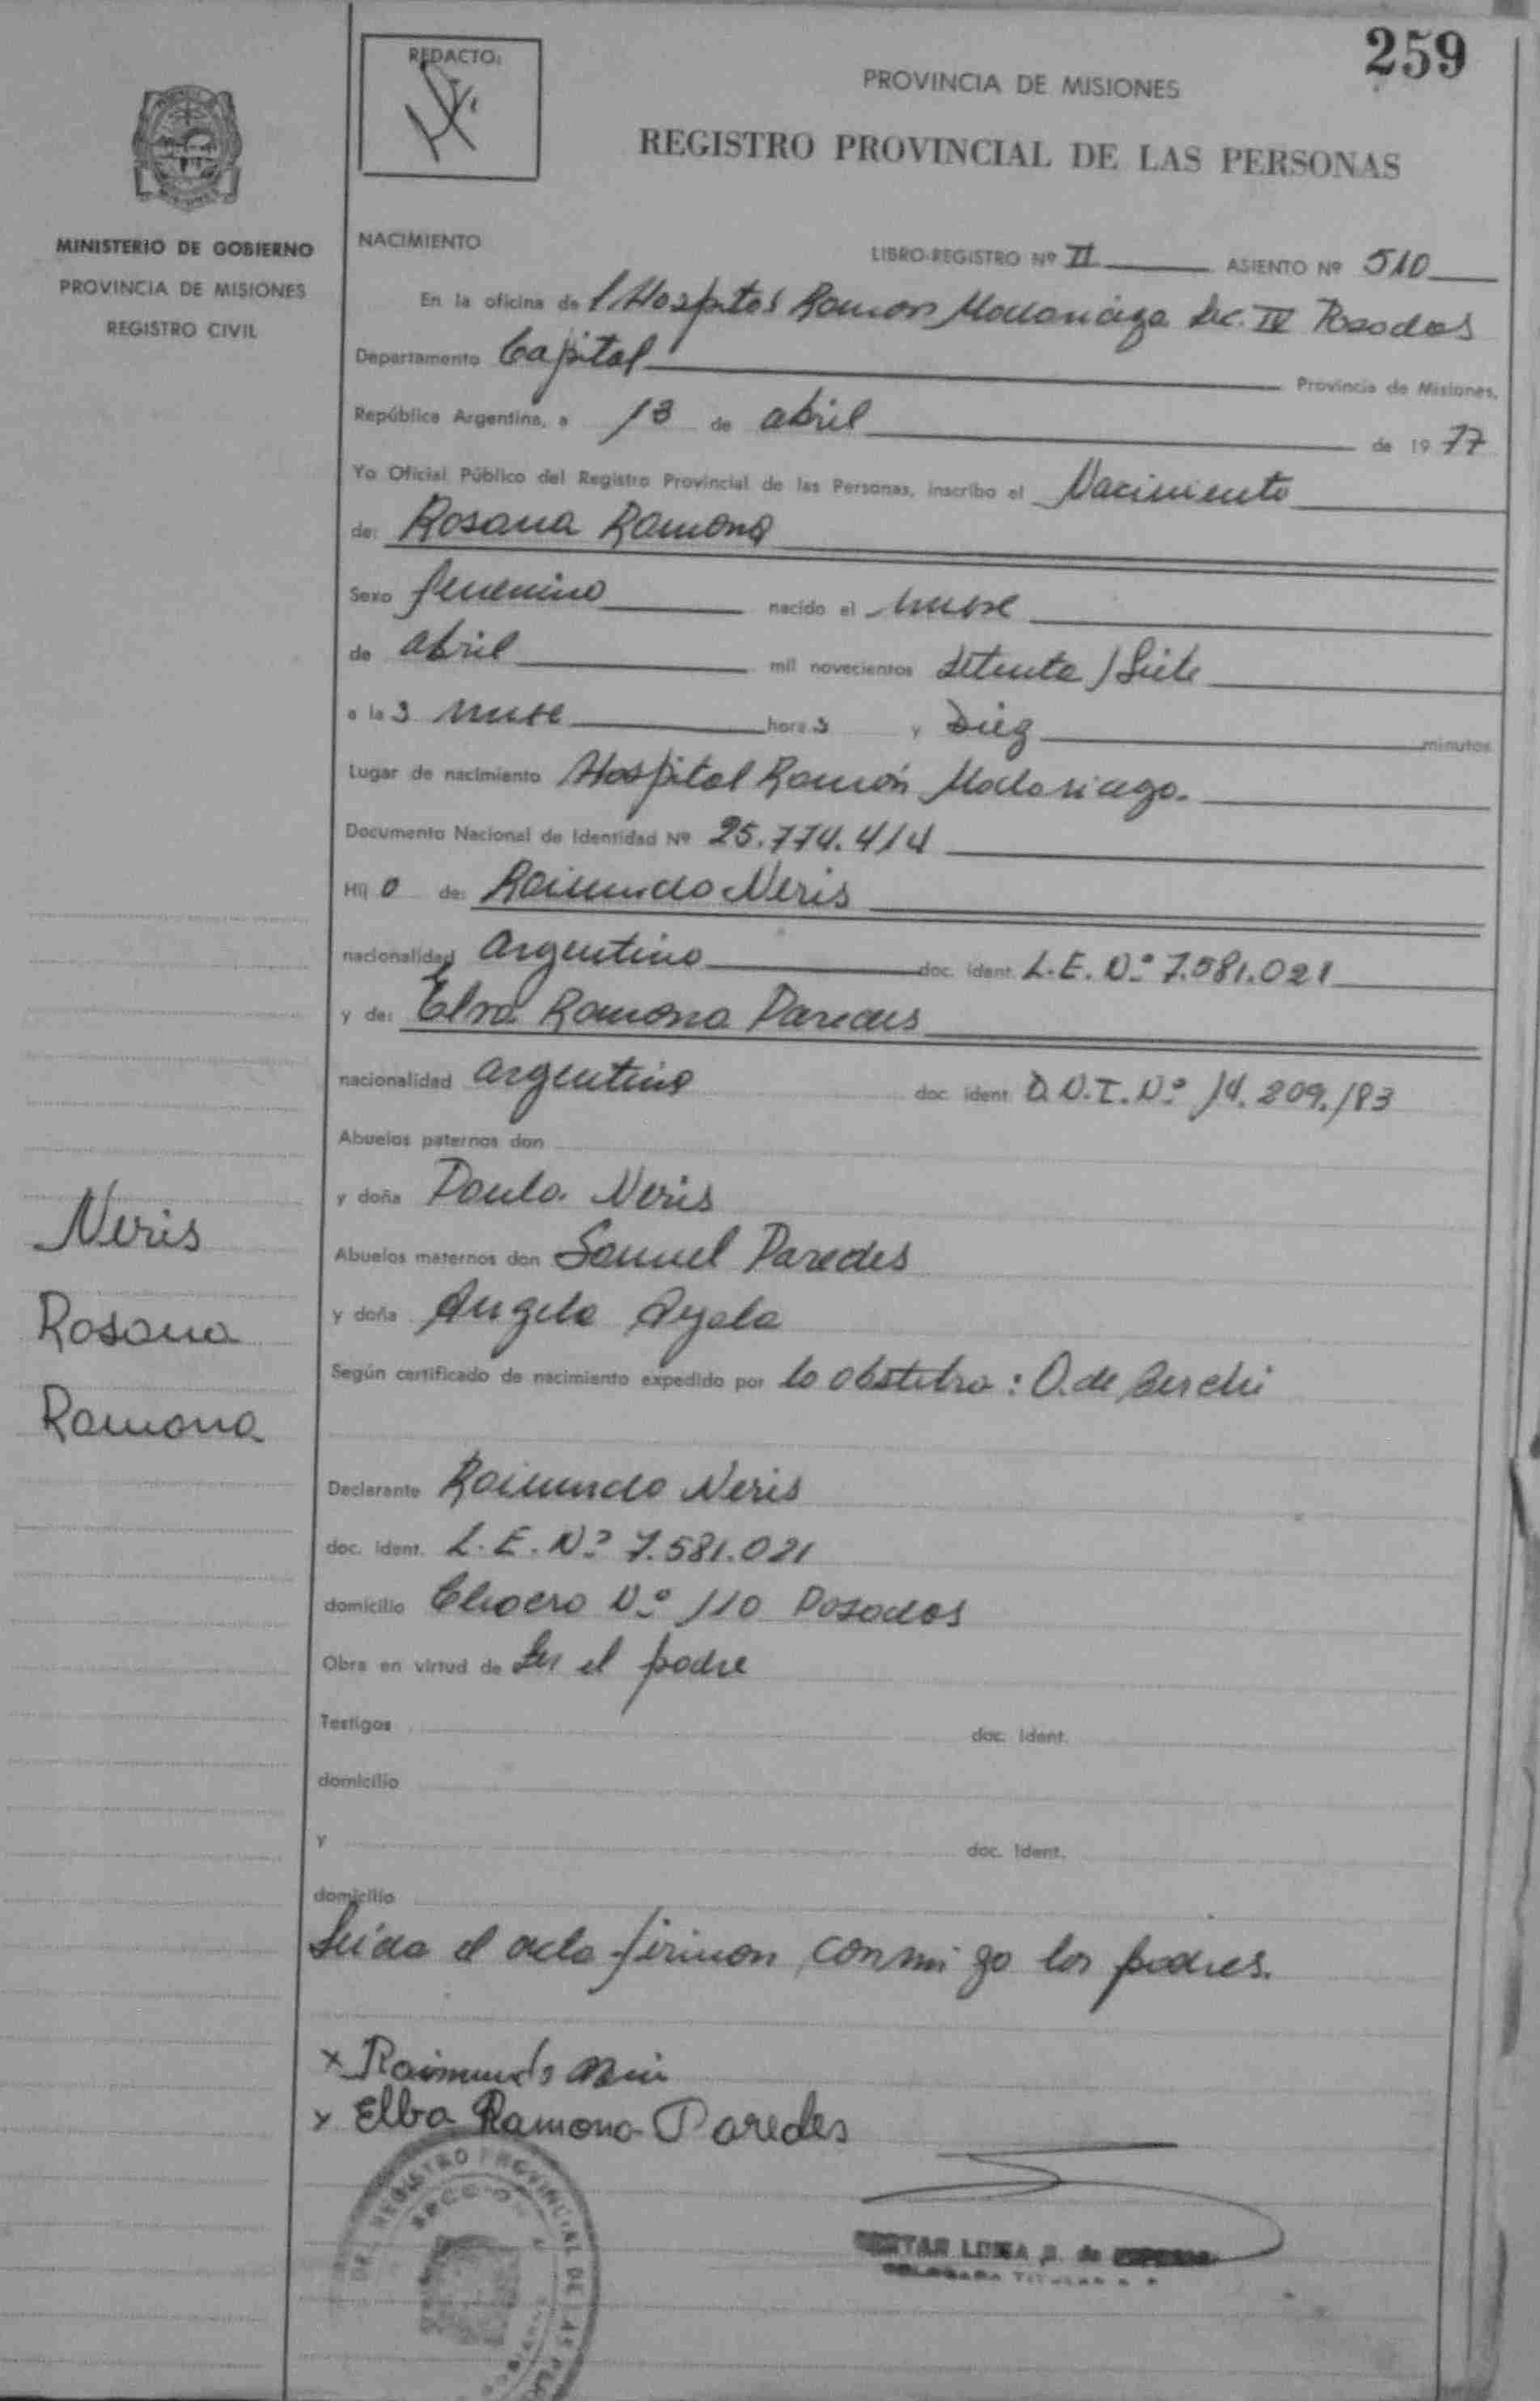 259
REDACTO:
PROVINCIA DE MISIONES
REGISTRO PROVINCIAL DE LAS PERSONAS
MINISTERIO DE GOBIERNO
PROVINCIA DE MISIONES
REGISTRO CIVIL
NACIMIENTO
LIBRO-REGISTRO Nº II ASIENTO Nº 510
En la oficina de l Hospital Ramon Madariaga Sec. IV Posadas
Departamento Capital Provincia de Misiones,
República Argentina, a 13 de abril de 1977
Yo Oficial Público del Registro Provincial de las Personas, inscribo el Nacimiento
de: Rosana Ramona
Sexo femenino nacido el nueve
de abril mil novecientos setenta y siete
a las nueve horas y Diez minutos
Lugar de nacimiento Hospital Ramón Madariaga.
Documento Nacional de Identidad Nº 25.774.414
Hijo de: Raimundo Neris
nacionalidad argentino doc. ident. L.E. Nº 7.581.021
y de: Elva Ramona Paredes
nacionalidad argentina doc. ident. D.N.I. Nº 14.209.183
Abuelos paternos don
y doña Paula Neris
Abuelos maternos don Samuel Paredes
y doña Angela Ayala
Según certificado de nacimiento expedido por la obstetra: O. de
Declarante Raimundo Neris
doc. ident. L.E. Nº 7.581.021
domicilio Nº 110 Posadas
Obra en virtud de ser el padre
Testigos doc. ident.
domicilio
y doc. ident.
domicilio
Leida el acta firman conmigo los padres.
Neris
Rosana
Ramona
x Raimundo
x Elba Ramona Paredes
REGISTRO PROVINCIAL DE LAS
SECCION
LUISA de
TITULAR